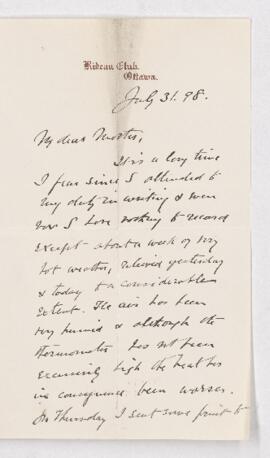 Rideau Club.
Ottawa.
July 31. 98.
My dear Mother,
It is a long time
I fear since I attended to
my duty in writing & even
now I have nothing to record
except about a week of very
hot weather, relieved yesterday
& today to a considerable
extent. The air has been
very humid & although the
thermometer has not been
excessively high the heat has
in consequence been worse.
On Thursday I sent some print to